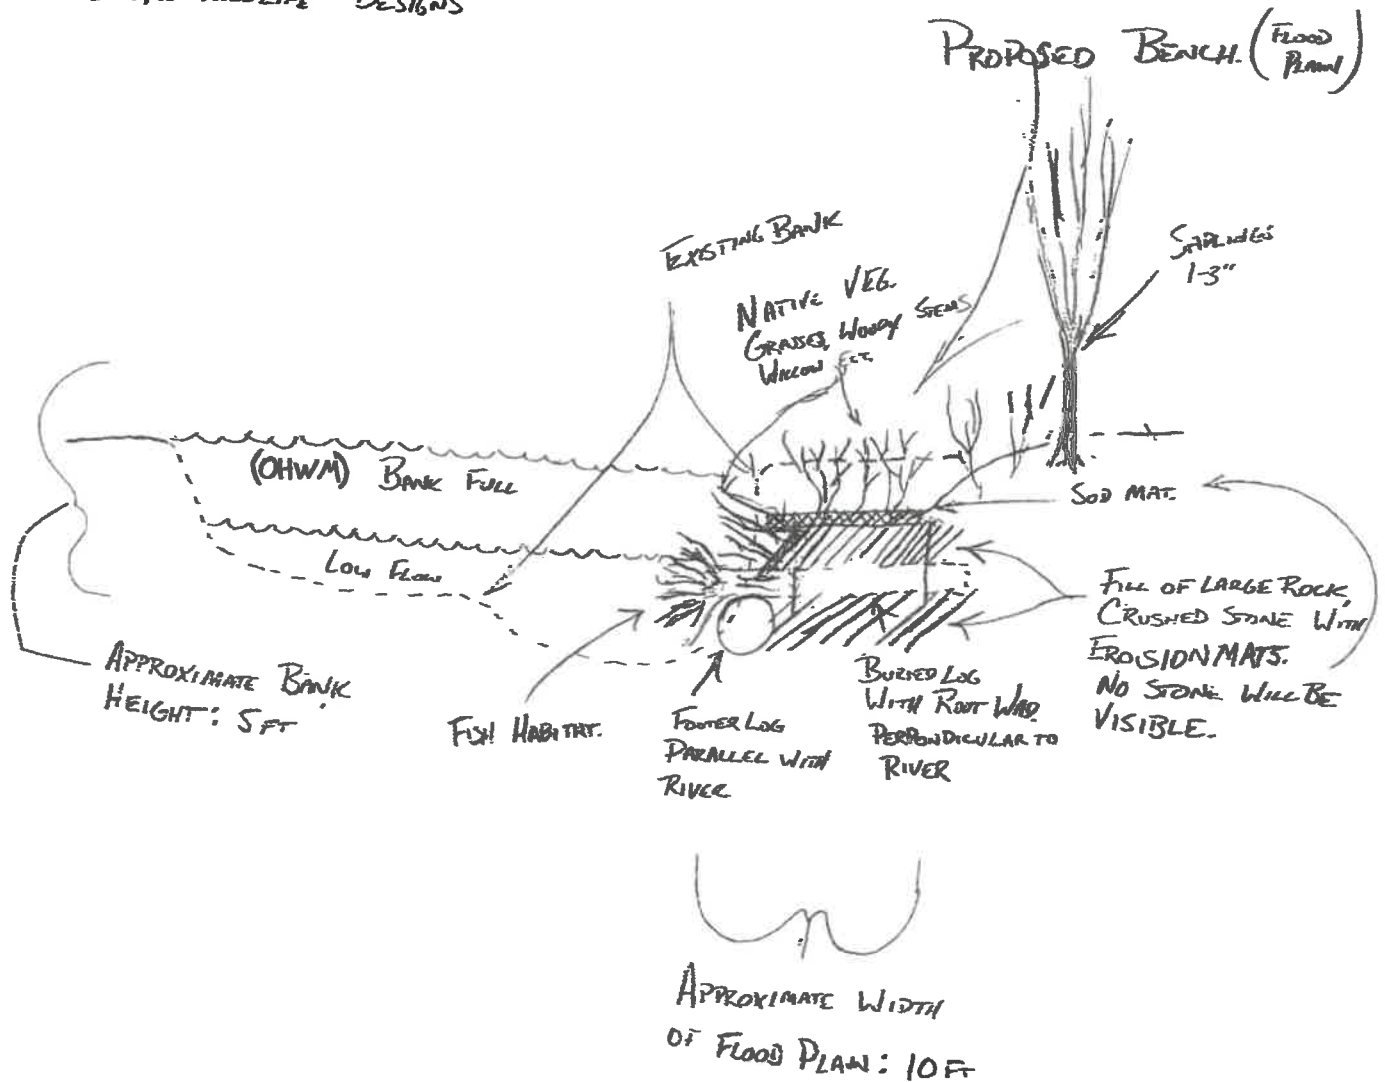 WILDLIFE DESIGNS
PROPOSED BENCH. (FLOOD
PLAIN)
EXISTING BANK
SAPLINGS
1-3"
NATIVE VEG.
GRASSES, WOODY STEMS
WILLOW ECT.
(OHWM) BANK FULL
SOD MAT.
LOW FLOW
FILL OF LARGE ROCK,
CRUSHED STONE WITH
EROISION MATS.
NO STONE WILL BE
VISIBLE.
APPROXIMATE BANK
HEIGHT: 5 FT
FISH HABITAT.
FOOTER LOG
PARALLEL WITH
RIVER
BURIED LOG
WITH ROOT WAD
PERPENDICULAR TO
RIVER
APPROXIMATE WIDTH
OF FLOOD PLAIN: 10 FT